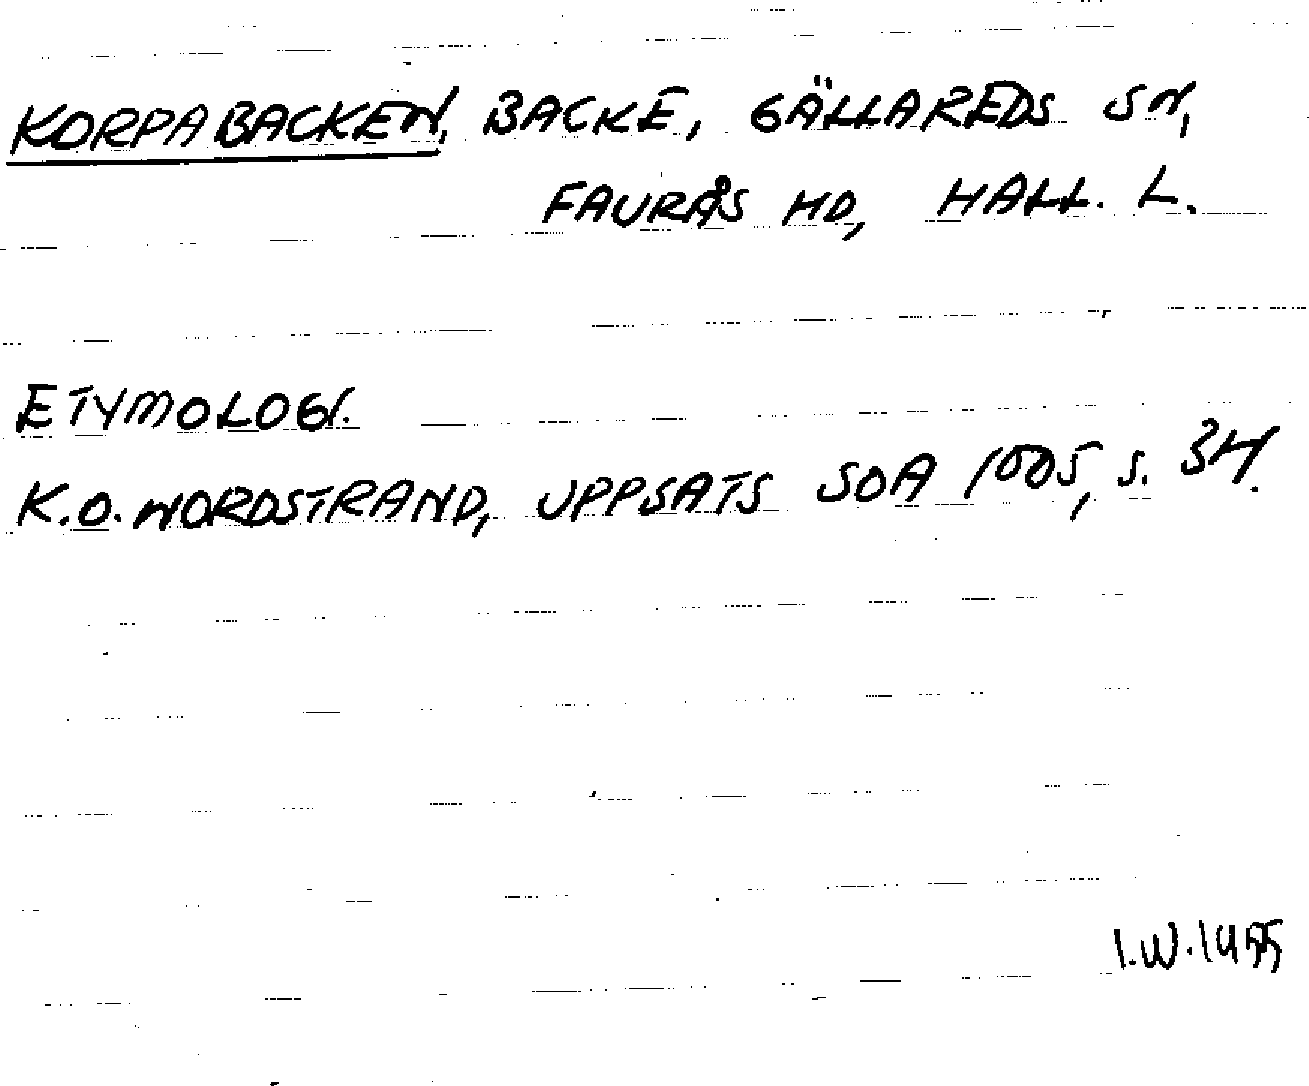 KORPABACKEN, BACKE, GÄLLAREDS SN,
FAURÅS HD, HALL. L.
ETYMOLOGI.
K.O. NORDSTRAND, UPPSATS SOA 1005, S. 34.
I.W.